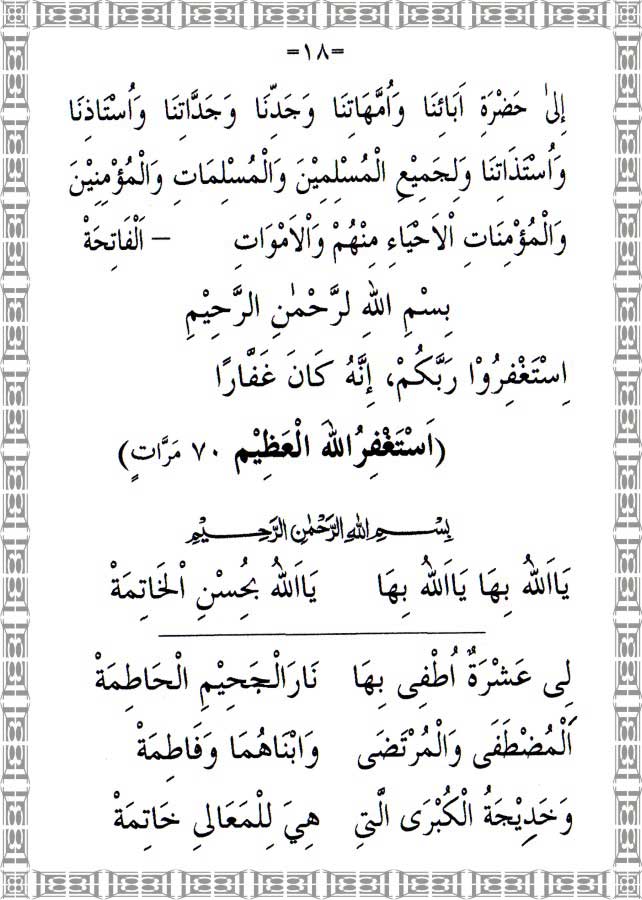 =١٨=
إِلىٰ حَضْرَةِ اَبَائِنَا وَاُمَّهَاتِنَا وَجَدِّنَا وَجَدَّاتِنَا وَاُسْتَاذِنَا
وَاُسْتَذَاتِنَا وَلِجَمِيْعِ الْمُسْلِمِيْنَ وَالْمُسْلِمَاتِ وَالْمُؤْمِنِيْنَ
وَالْمُؤْمِنَاتِ اْلاَحْيَاءِ مِنْهُمْ وَاْلاَمْوَاتِ – اَلْفَاتِحَةْ
بِسْمِ اللهِ لرَّحْمٰنِ الرَّحِيْمِ
اِسْتَغْفِرُوْا رَبَّكُمْ، إِنَّهُ كَانَ غَفَّارًا
(اَسْتَغْفِرُاللهَ الْعَظِيْم ٧٠ مَرَّاتٍ)
بِسْــمِ اللهِ الرَّحْمٰنِ الرَّحِـــيْمِ
يَااَللهُ بِهَا يَااَللهُ بِهَا يَااَللهُ بِحُسْنِ اْلخَاتِمَةْ
لِى عَشْرَةٌ اُطْفِى بِهَا نَارَالْجَحِيْمِ الْحَاطِمَةْ
اَلْمُصْطَفَى وَالْمُرْتَضَى وَابْنَاهُمَا وَفَاطِمَةْ
وَخَدِيْجَةُ الْكُبْرَى الَّتِى هِيَ لِلْمَعَالِى خَاتِمَةْ